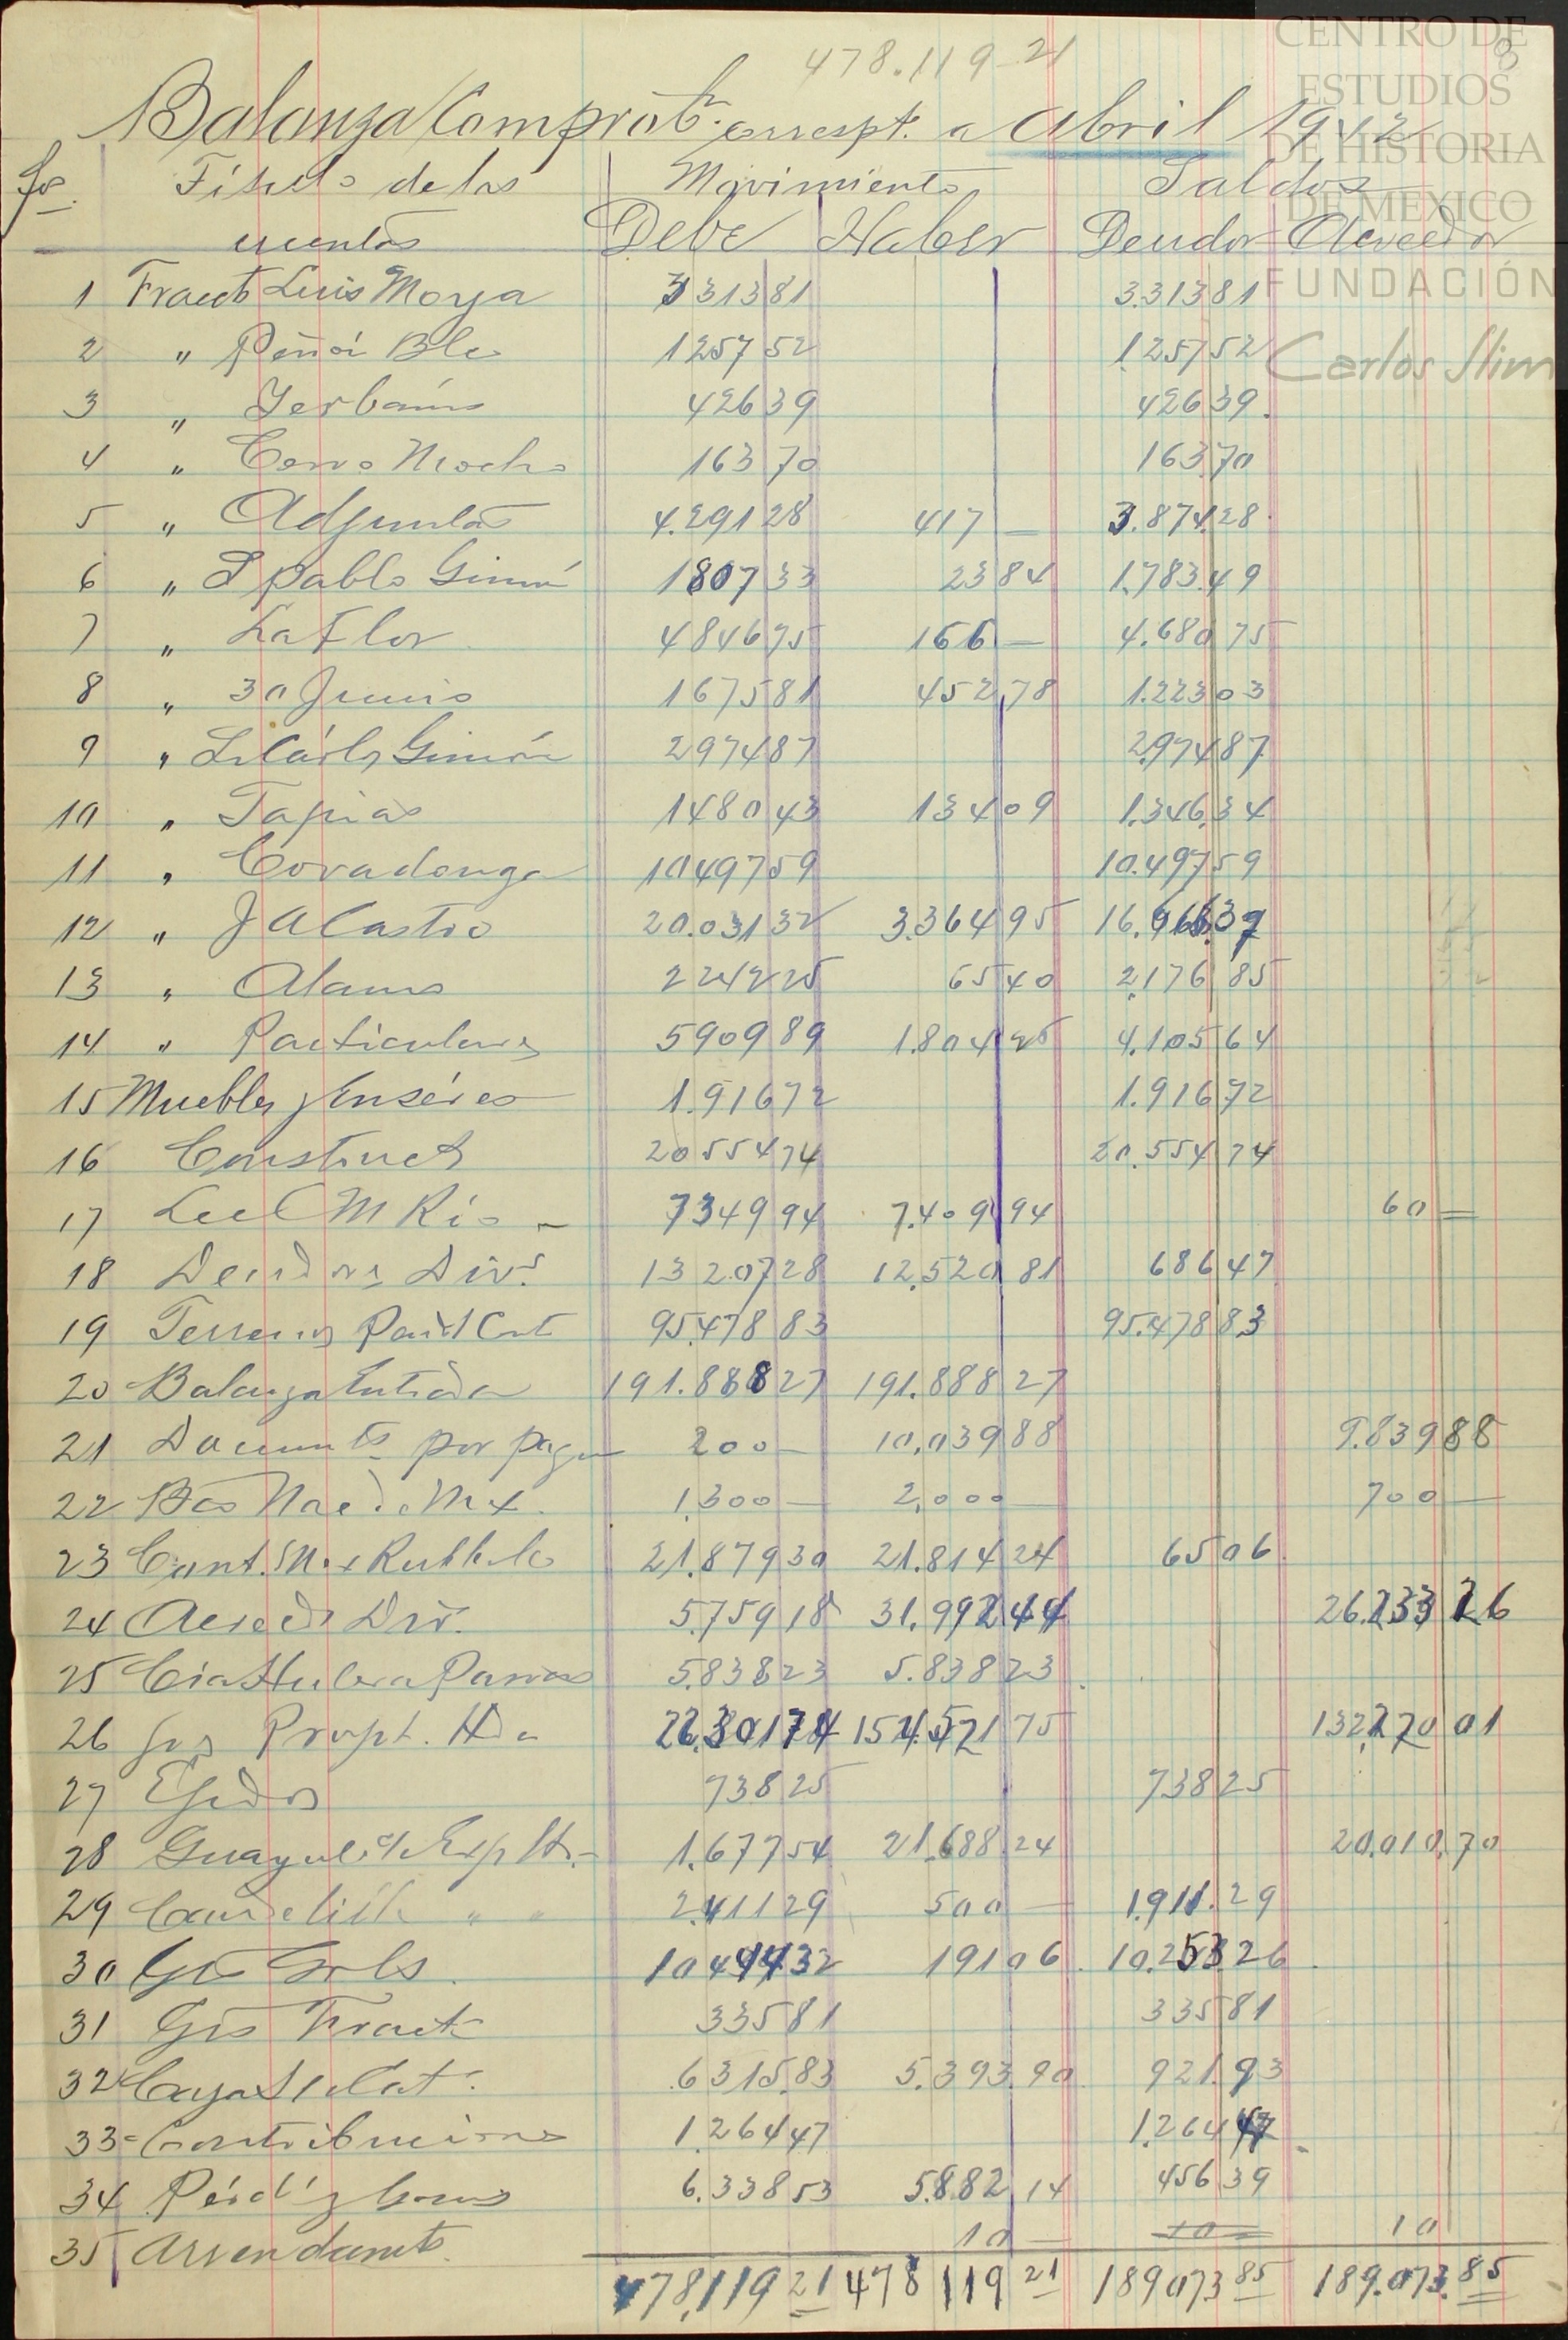 478.119-21
Balanza Comprobn. correspt. a abril 1912
CENTRO DE ESTUDIOS DE HISTORIA DE MEXICO
FUNDACIÓN
Carlos Slim
8
fos. Titulo de las Movimiento Saldos
cuentas Debe Haber Deudor Acreedor
1 Fracto Luis Moya 3313 81 3.313 81
2 " Peñón Blco 1257 52 1.257 52
3 " Yerbanis 426 39 426 39.
4 " Cerro Mocho 163 70 163 70
5 " Adjuntas 4.291 28 417 — 3.874.28
6 " S Pablo Gimn 1807 33 23 84 1.783.49
7 " La Flor 4846 75 166 — 4.680 75
8 " 30 Junio 1675 81 452 78 1.223 03
9 " Gimón 2974 87 2.974 87
10 " Tapias 1480 43 134 09 1.346.34
11 " Covadonga 10497 59 10.497 59
12 " J A Castro 20.031 32 3.364 95 16.666.37
13 " Alamo 2242 25 65 40 2.176 85
14 " Particulares 5909 89 1.804 25 4.105 64
15 Muebles y Enseres 1.916 72 1.916 72
16 Construct 20554 74 20.554 74
17 M Rio — 7349 94 7.409 94 60 =
18 Deudores Divs. 13207 28 12.520 81 686 47
19 Terrenos 95.478 83 95.478 83
20 Balanza Entrada 191.888 27 191.888 27
21 Documts por pagar 200 — 10.039 88 9.839 88
22 Bco Nac de Mex. 1.300 — 2.000 — 700 —
23 Cont. Mex Rubber Co 21.879 30 21.814 24 65 06
24 Acreeds Div. 5.759 18 31.992 44 26.233 26
25 Cia Hulera Parras 5.838 23 5.838 23
26 Propt. Hda 22.301 74 154.571 75 132.270 01
27 Ejidos 738 25 738 25
28 Guayule Exp 1.677 54 21.688 24 20.010.70
29 Candelilla " " 2.411 29 500 — 1.911.29
30 Gts Grls. 10444 32 191 06 10.253.26
31 Gts Fract 335 81 335 81
32 Caja 6315.83 5.393.90 921.93
33 Contribuciones 1.264 47 1.264 47
34 Pérds y Gans 6.338 53 5.882 14 456 39
35 Arrendamts. 10 — 10 10
478,119 21 478 119 21 189073 85 189.073.85